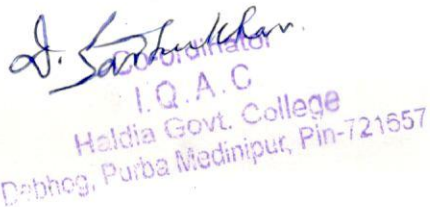 D. Santukhan.
Co-ordinator
I.Q.A.C
Haldia Govt. College
Debhog, Purba Medinipur, Pin-721657